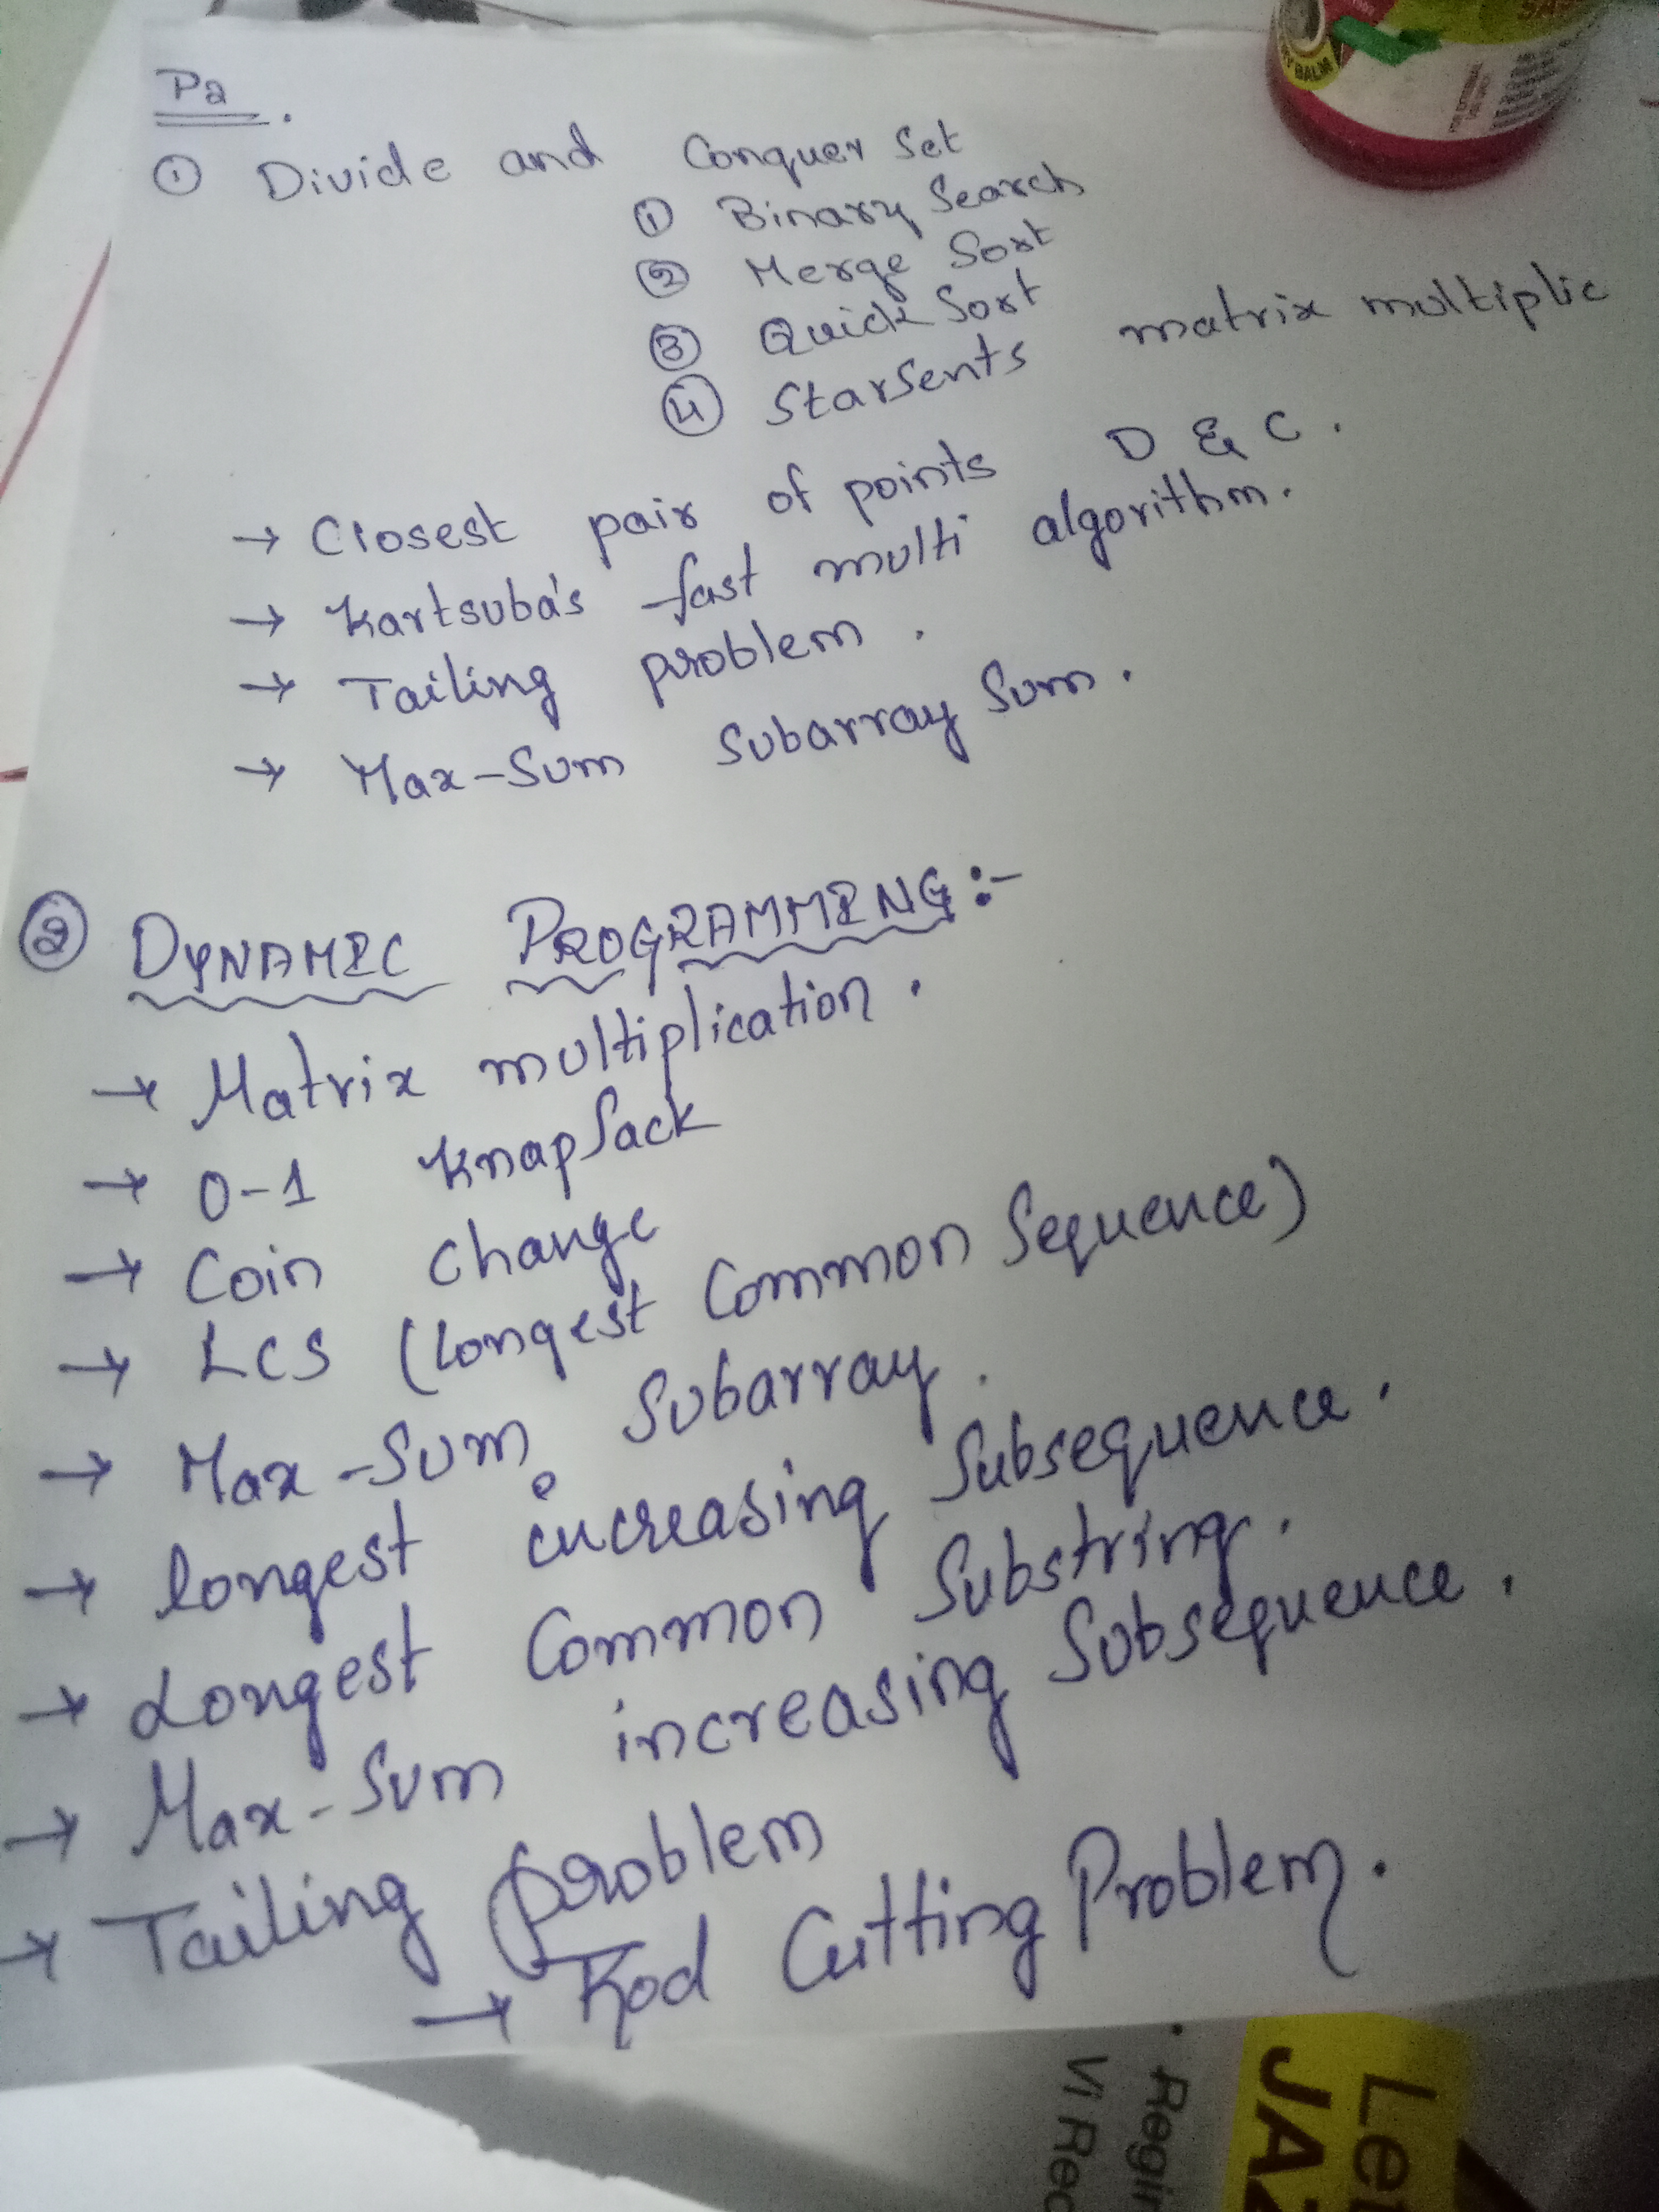 P2.
① Divide and Conquer Set
① Binary Search
② Merge Sort
③ Quick Sort
④ Starsents matrix multiplic
→ Closest pair of points D & C.
→ Kartsuba's fast multi algorithm.
→ Tailing problem.
→ Max-Sum Subarray Sum.
② DYNAMIC PROGRAMMING:-
→ Matrix multiplication.
→ 0-1 KnapSack
→ Coin Change
→ LCS (Longest Common Sequence)
→ Max-Sum Subarray.
→ longest increasing Subsequence.
→ Longest Common Substring.
→ Max-Sum increasing Subsequence.
→ Tailing problem
→ Rod Cutting Problem.
BALM
Regin
VI Rec
Let
JAZ